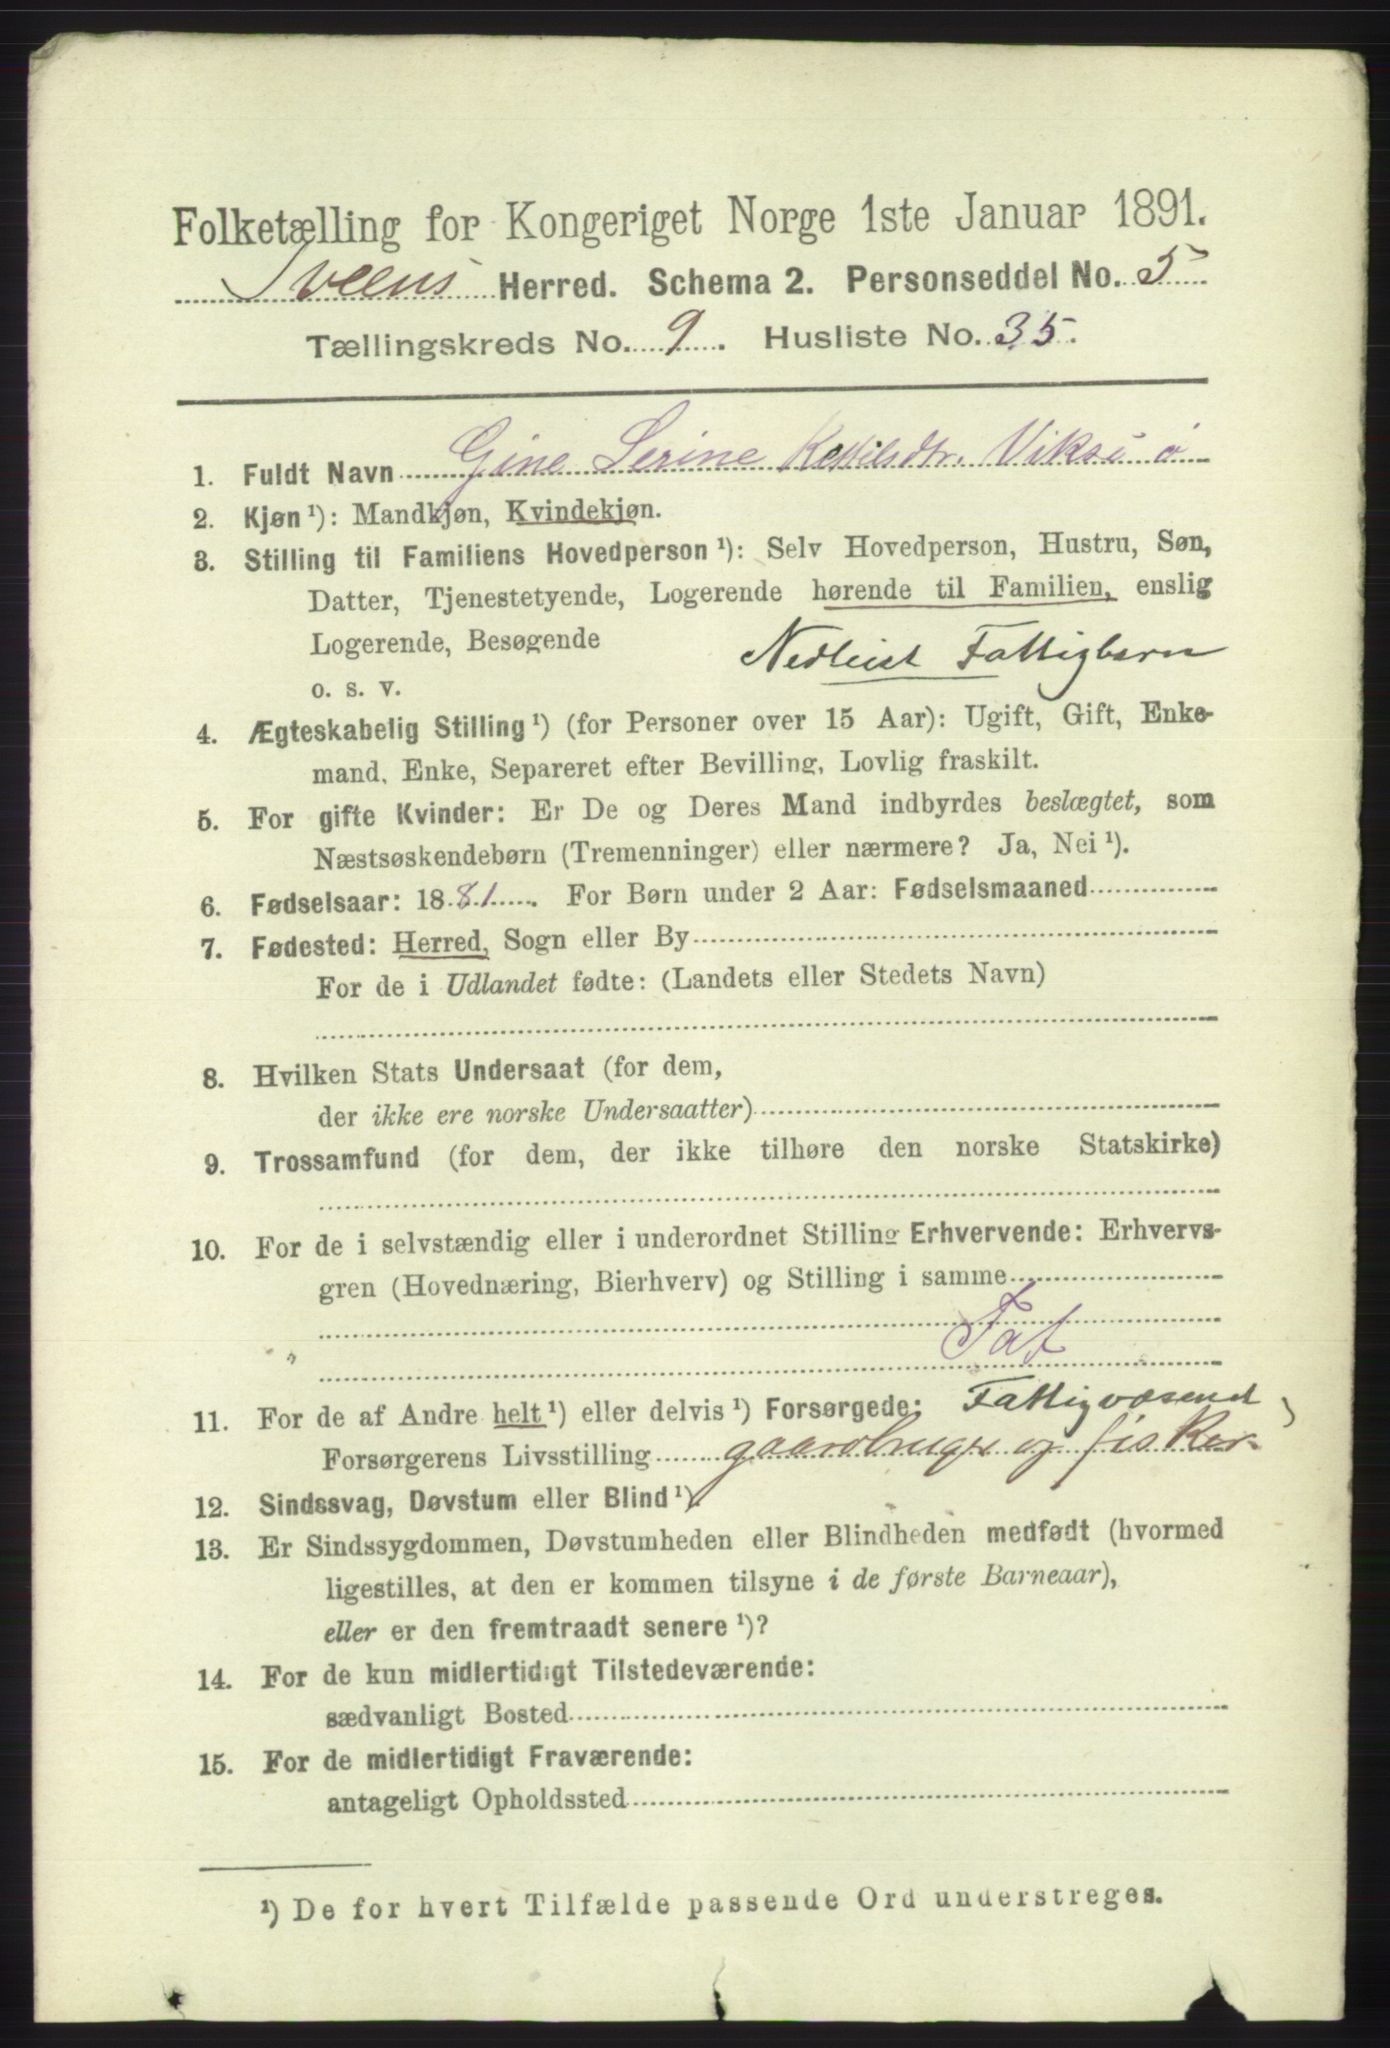 Folketælling for Kongeriget Norge 1ste Januar 1891.
Sveens Herred. Schema 2. Personseddel No. 5
Tællingskreds No. 9. Husliste No. 35.
1. Fuldt Navn Gine Serine Ketilsdtr. Viksø
2. Kjøn ¹): Mandkjøn, Kvindekjøn.
3. Stilling til Familiens Hovedperson ¹): Selv Hovedperson, Hustru, Søn,
Datter, Tjenestetyende, Logerende hørende til Familien, enslig
Logerende, Besøgende
Fattigbarn
o. s. v.
4. Ægteskabelig Stilling ¹) (for Personer over 15 Aar): Ugift, Gift, Enke-
mand, Enke, Separeret efter Bevilling, Lovlig fraskilt.
5. For gifte Kvinder: Er De og Deres Mand indbyrdes beslægtet, som
Næstsøskendebørn (Tremenninger) eller nærmere? Ja, Nei ¹).
6. Fødselsaar: 1881. For Børn under 2 Aar: Fødselsmaaned
7. Fødested: Herred, Sogn eller By
For de i Udlandet fødte: (Landets eller Stedets Navn)
8. Hvilken Stats Undersaat (for dem,
der ikke ere norske Undersaatter)
9. Trossamfund (for dem, der ikke tilhøre den norske Statskirke)
10. For de i selvstændig eller i underordnet Stilling Erhvervende: Erhvervs-
gren (Hovednæring, Bierhverv) og Stilling i samme
"
11. For de af Andre helt ¹) eller delvis ¹) Forsørgede: Fattigvæsenet
Forsørgerens Livsstilling gaardbruger og fisker
12. Sindssvag, Døvstum eller Blind ¹).
13. Er Sindssygdommen, Døvstumheden eller Blindheden medfødt (hvormed
ligestilles, at den er kommen tilsyne i de første Barneaar),
eller er den fremtraadt senere ¹)?
14. For de kun midlertidigt Tilstedeværende:
sædvanligt Bosted
15. For de midlertidigt Fraværende:
antageligt Opholdssted
¹) De for hvert Tilfælde passende Ord understreges.